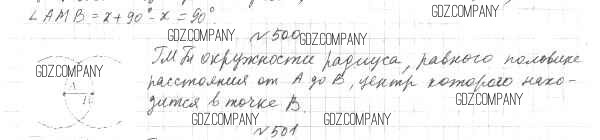 ∠AMB = x + 90° - x = 90°.
GDZ.COMPANY
№500
GDZ.COMPANY GDZ.COMPANY
ГМТ окружности радиуса, равного половине
GDZ.COMPANY
расстояния от A до B, центр которого нахо-
GDZ.COMPANY
дится в точке B.
GDZ.COMPANY GDZ.COMPANY
№501